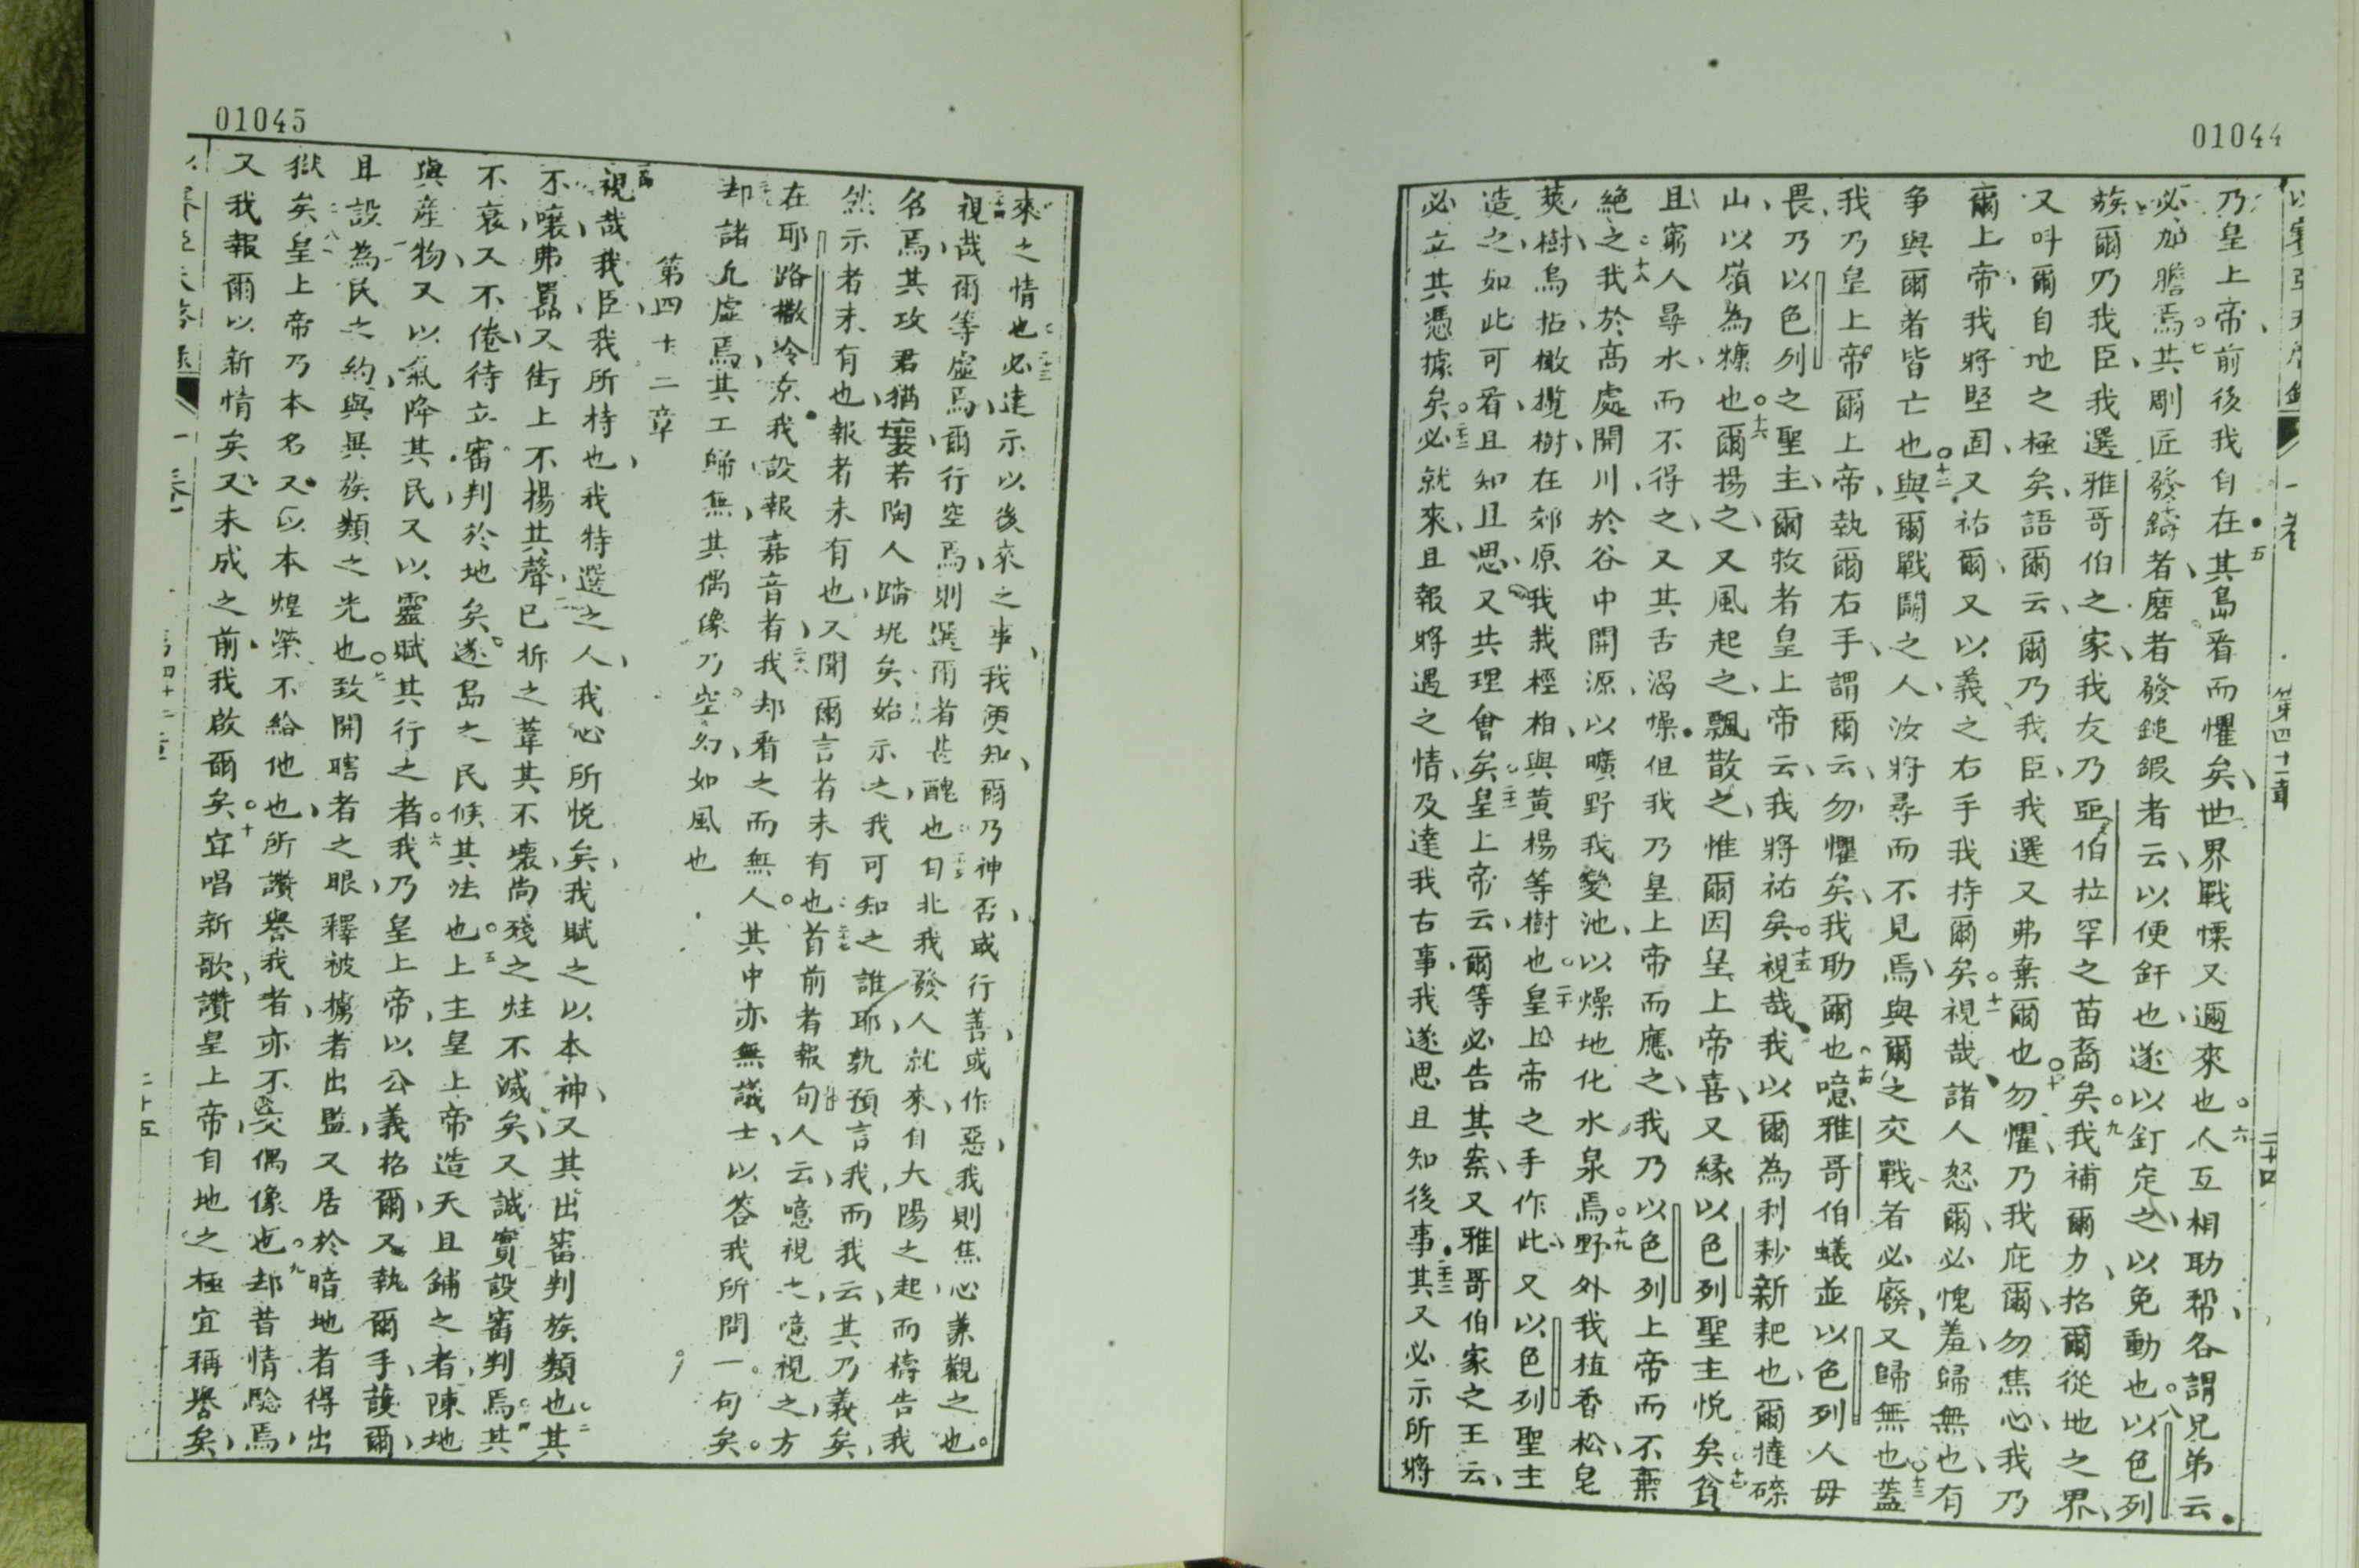 01044
第四十一章
二十四
乃皇上帝前後我自在其島看而懼矣世界戰慄又邇來也人互相助帮各謂兄弟云
必加膽焉其剛匠發鑄者磨者發鎚鍛者云以便釬也遂以釘定之以免動也以色列
族爾乃我臣我選雅哥伯之家我友乃亞伯拉罕之苗裔矣我補爾力招爾從地之界
又呌爾自地之極矣語爾云爾乃我臣我選又弗棄爾也勿懼乃我庇爾勿焦心我乃
爾上帝我將堅固又祐爾又以義之右手我持爾矣視哉諸人怒爾必愧羞歸無也有
争與爾者皆亡也與爾戰鬬之人汝將尋而不見焉與爾之交戰者必廢又歸無也蓋
我乃皇上帝爾上帝執爾右手謂爾云勿懼矣我助爾也噫雅哥伯蟻並以色列人毋
畏乃以色列之聖主爾救者皇上帝云我將祐矣視哉我以爾為利耖新耙也爾撻磔
山以嶺為糠也爾揚之又風起之飄散之惟爾因皇上帝喜又緣以色列聖主悦矣貧
且窮人尋水而不得之又其舌渴懆但我乃皇上帝而應之我乃以色列上帝而不棄
絶之我於高處開川於谷中開源以曠野我變池以燥地化水泉焉野外我植香松皂
莢樹烏拈橄欖樹在郊原我栽檉柏與黃楊等樹也皇上帝之手作此又以色列聖主
造之如此可看且知且思又共理會矣皇上帝云爾等必告其案又雅哥伯家之王云
必立其憑據矣必就來且報將遇之情及達我古事我遂思且知後事其又必示所將
01045
來之情也必達示以後來之事我便知爾乃神否或行善或作惡我則焦心兼觀之也
視哉爾等虛焉爾行空焉則選爾者甚醜也自北我發人就來自大陽之起而禱告我
名焉其攻君猶壤若陶人踏坭矣始示之我可知之誰耶孰預言我而我云其乃義矣
然示者未有也報者未有也又聞爾言者未有也首前者報句人云噫視之噫視之方
在耶路撒冷京我設報嘉音者我却看之而無人其中亦無議士以答我所問一句矣
却諸凢虛焉其工歸無其偶像乃空幻如風也
第四十二章
視哉我臣我所持也我特選之人我心所悦矣我賦之以本神又其出審判族類也其
不嚷弗嚣又街上不揚其聲已折之葦其不壞尚殘之炷不滅矣又誠實設審判焉其
不衰又不倦待立審判於地矣遂島之民候其法也上主皇上帝造天且鋪之者陳地
與產物又以氣降其民又以靈賦其行之者我乃皇上帝以公義招爾又執爾手護爾
且設為民之約與異族類之光也致開瞎者之眼釋被擄者出監又居於暗地者得出
獄矣皇上帝乃本名又以本煌榮不給他也所讚譽我者亦不交偶像也却昔情驗焉
又我報爾以新情矣又未成之前我啟爾矣宜唱新歌讚皇上帝自地之極宜稱譽矣
二十五